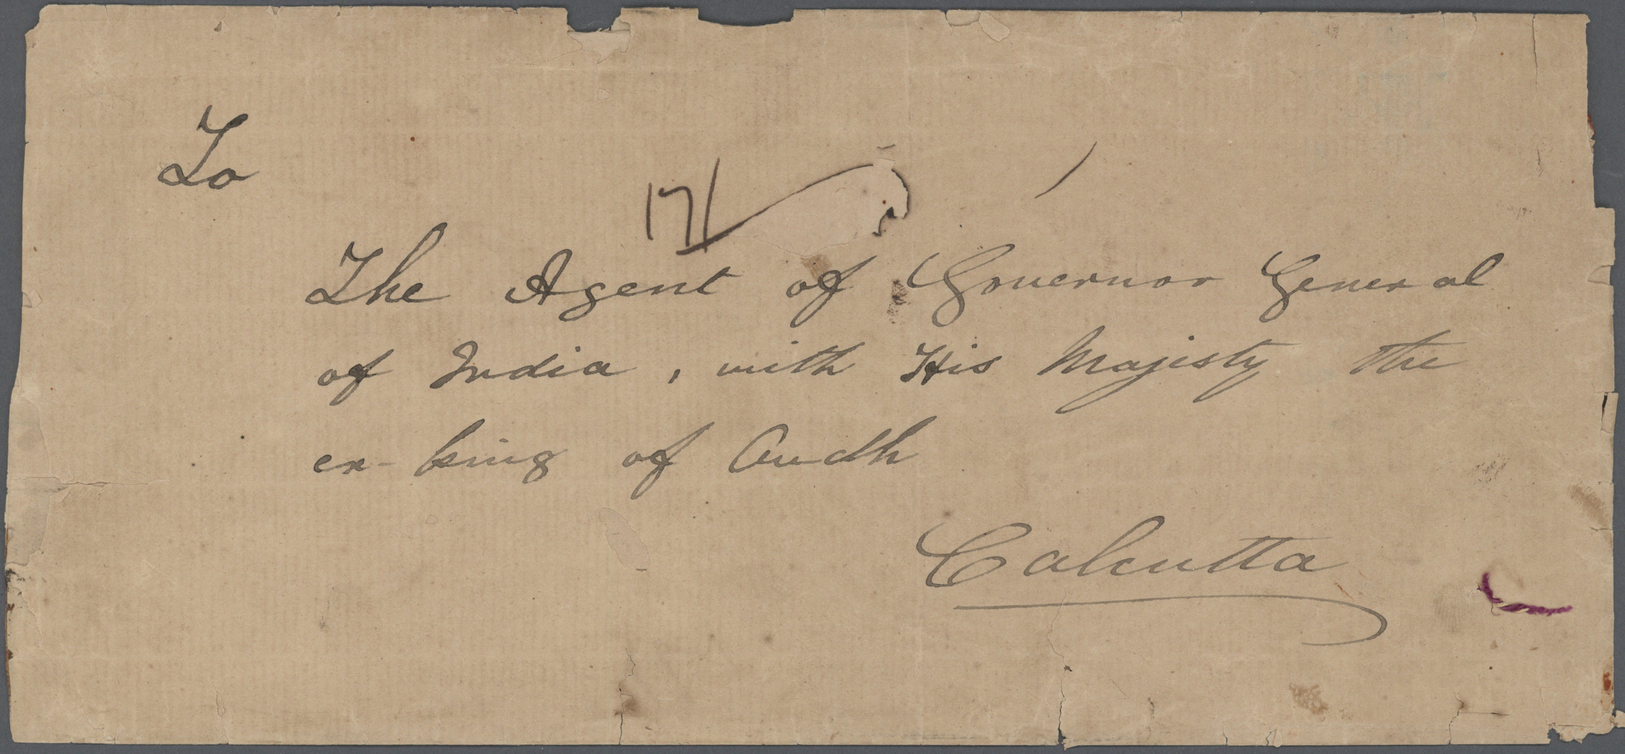 To
171
The Agent of Governor General
of India, with His Majesty the
ex-king of Oudh
Calcutta